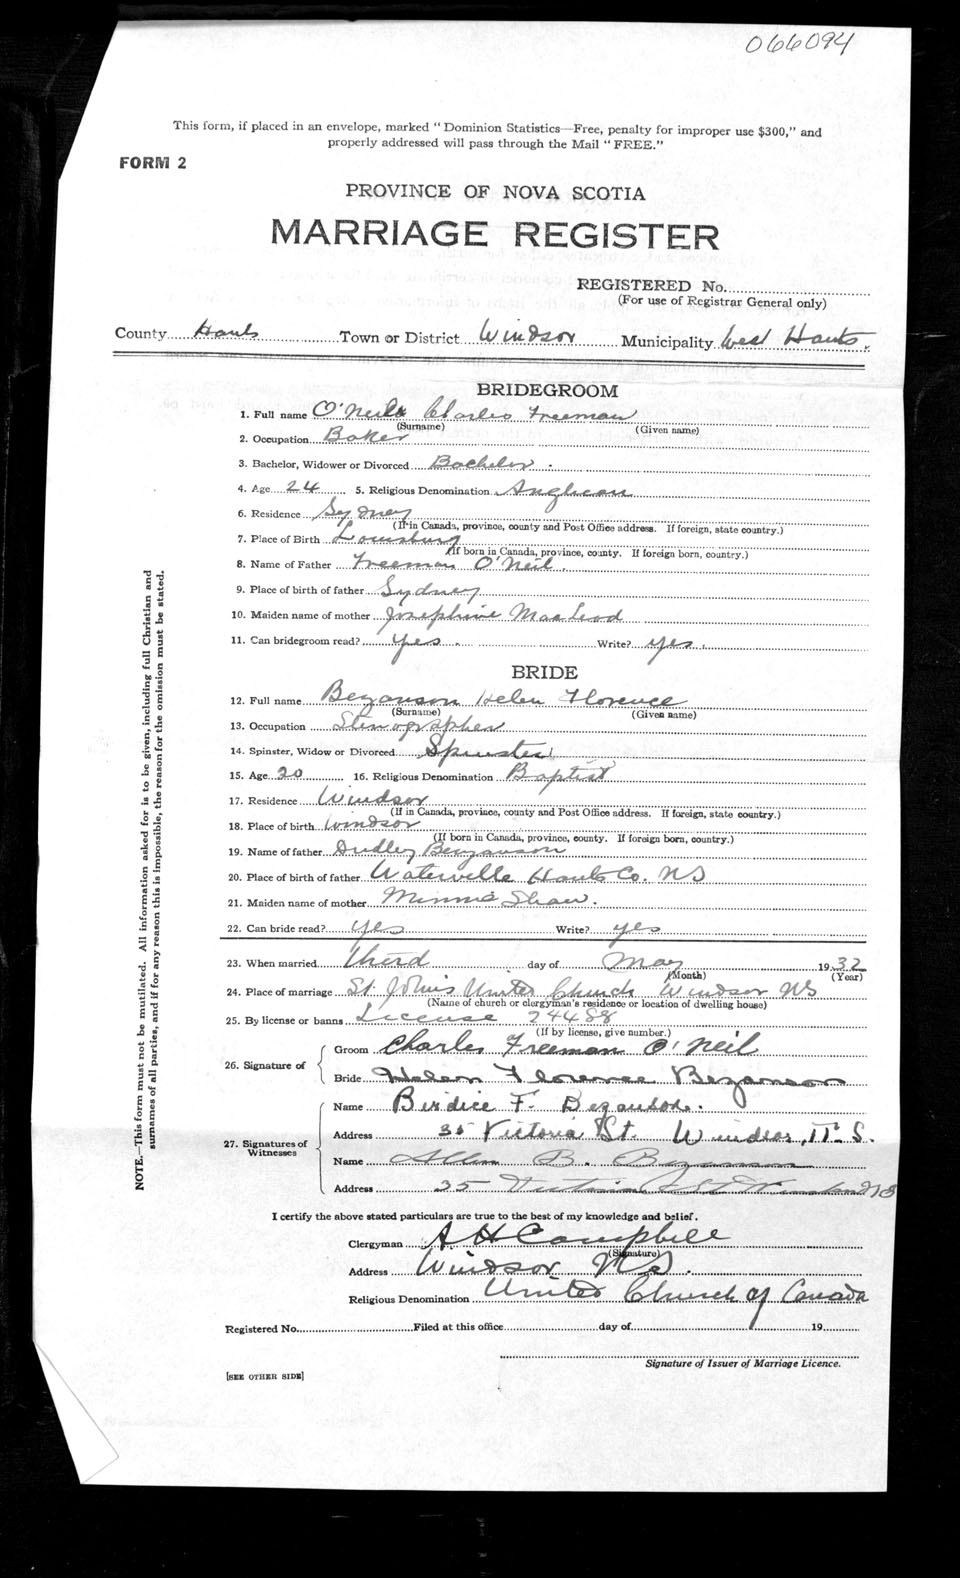 066094
This form, if placed in an envelope, marked " Dominion Statistics—Free, penalty for improper use $300," and
properly addressed will pass through the Mail " FREE."
FORM 2
PROVINCE OF NOVA SCOTIA
MARRIAGE REGISTER
REGISTERED No.
(For use of Registrar General only)
County Hants Town or District Windsor Municipality West Hants.
BRIDEGROOM
1. Full name O'Neil Charles Freeman
(Surname) (Given name)
2. Occupation Baker
3. Bachelor, Widower or Divorced Bachelor.
4. Age 24 5. Religious Denomination Anglican
6. Residence Sydney
(If in Canada, province, county and Post Office address. If foreign, state country.)
7. Place of Birth Louisburg
(If born in Canada, province, county. If foreign born, country.)
8. Name of Father Freeman O'Neil.
9. Place of birth of father Sydney
10. Maiden name of mother Josephine MacLeod
11. Can bridegroom read? yes. Write? yes.
BRIDE
12. Full name Bezanson Helen Florence
(Surname) (Given name)
13. Occupation Stenographer
14. Spinster, Widow or Divorced Spinster
15. Age 20 16. Religious Denomination Baptist
17. Residence Windsor
(If in Canada, province, county and Post Office address. If foreign, state country.)
18. Place of birth Windsor
(If born in Canada, province, county. If foreign born, country.)
19. Name of father Dudley Bezanson
20. Place of birth of father Waterville Hants Co. NS
21. Maiden name of mother Minnie Shaw.
22. Can bride read? yes Write? yes
23. When married third day of May 1932
(Month) (Year)
24. Place of marriage St. John's United Church Windsor NS
(Name of church or clergyman's residence or location of dwelling house)
25. By license or banns License 24488
(If by license, give number.)
26. Signature of
Groom Charles Freeman O'Neil
Bride Helen Florence Bezanson
27. Signatures of Witnesses
Name Birdice F. Bezanson.
Address 35 Victoria St. Windsor, N.S.
Name Allen B. Bezanson
Address 35 Victoria St Windsor NS
I certify the above stated particulars are true to the best of my knowledge and belief.
Clergyman A H Campbell
(Signature)
Address Windsor NS.
Religious Denomination United Church of Canada
Registered No. Filed at this office day of 19
Signature of Issuer of Marriage Licence.
[SEE OTHER SIDE]
NOTE.—This form must not be mutilated. All information asked for is to be given, including full Christian and
surnames of all parties, and if for any reason this is impossible, the reason for the omission must be stated.